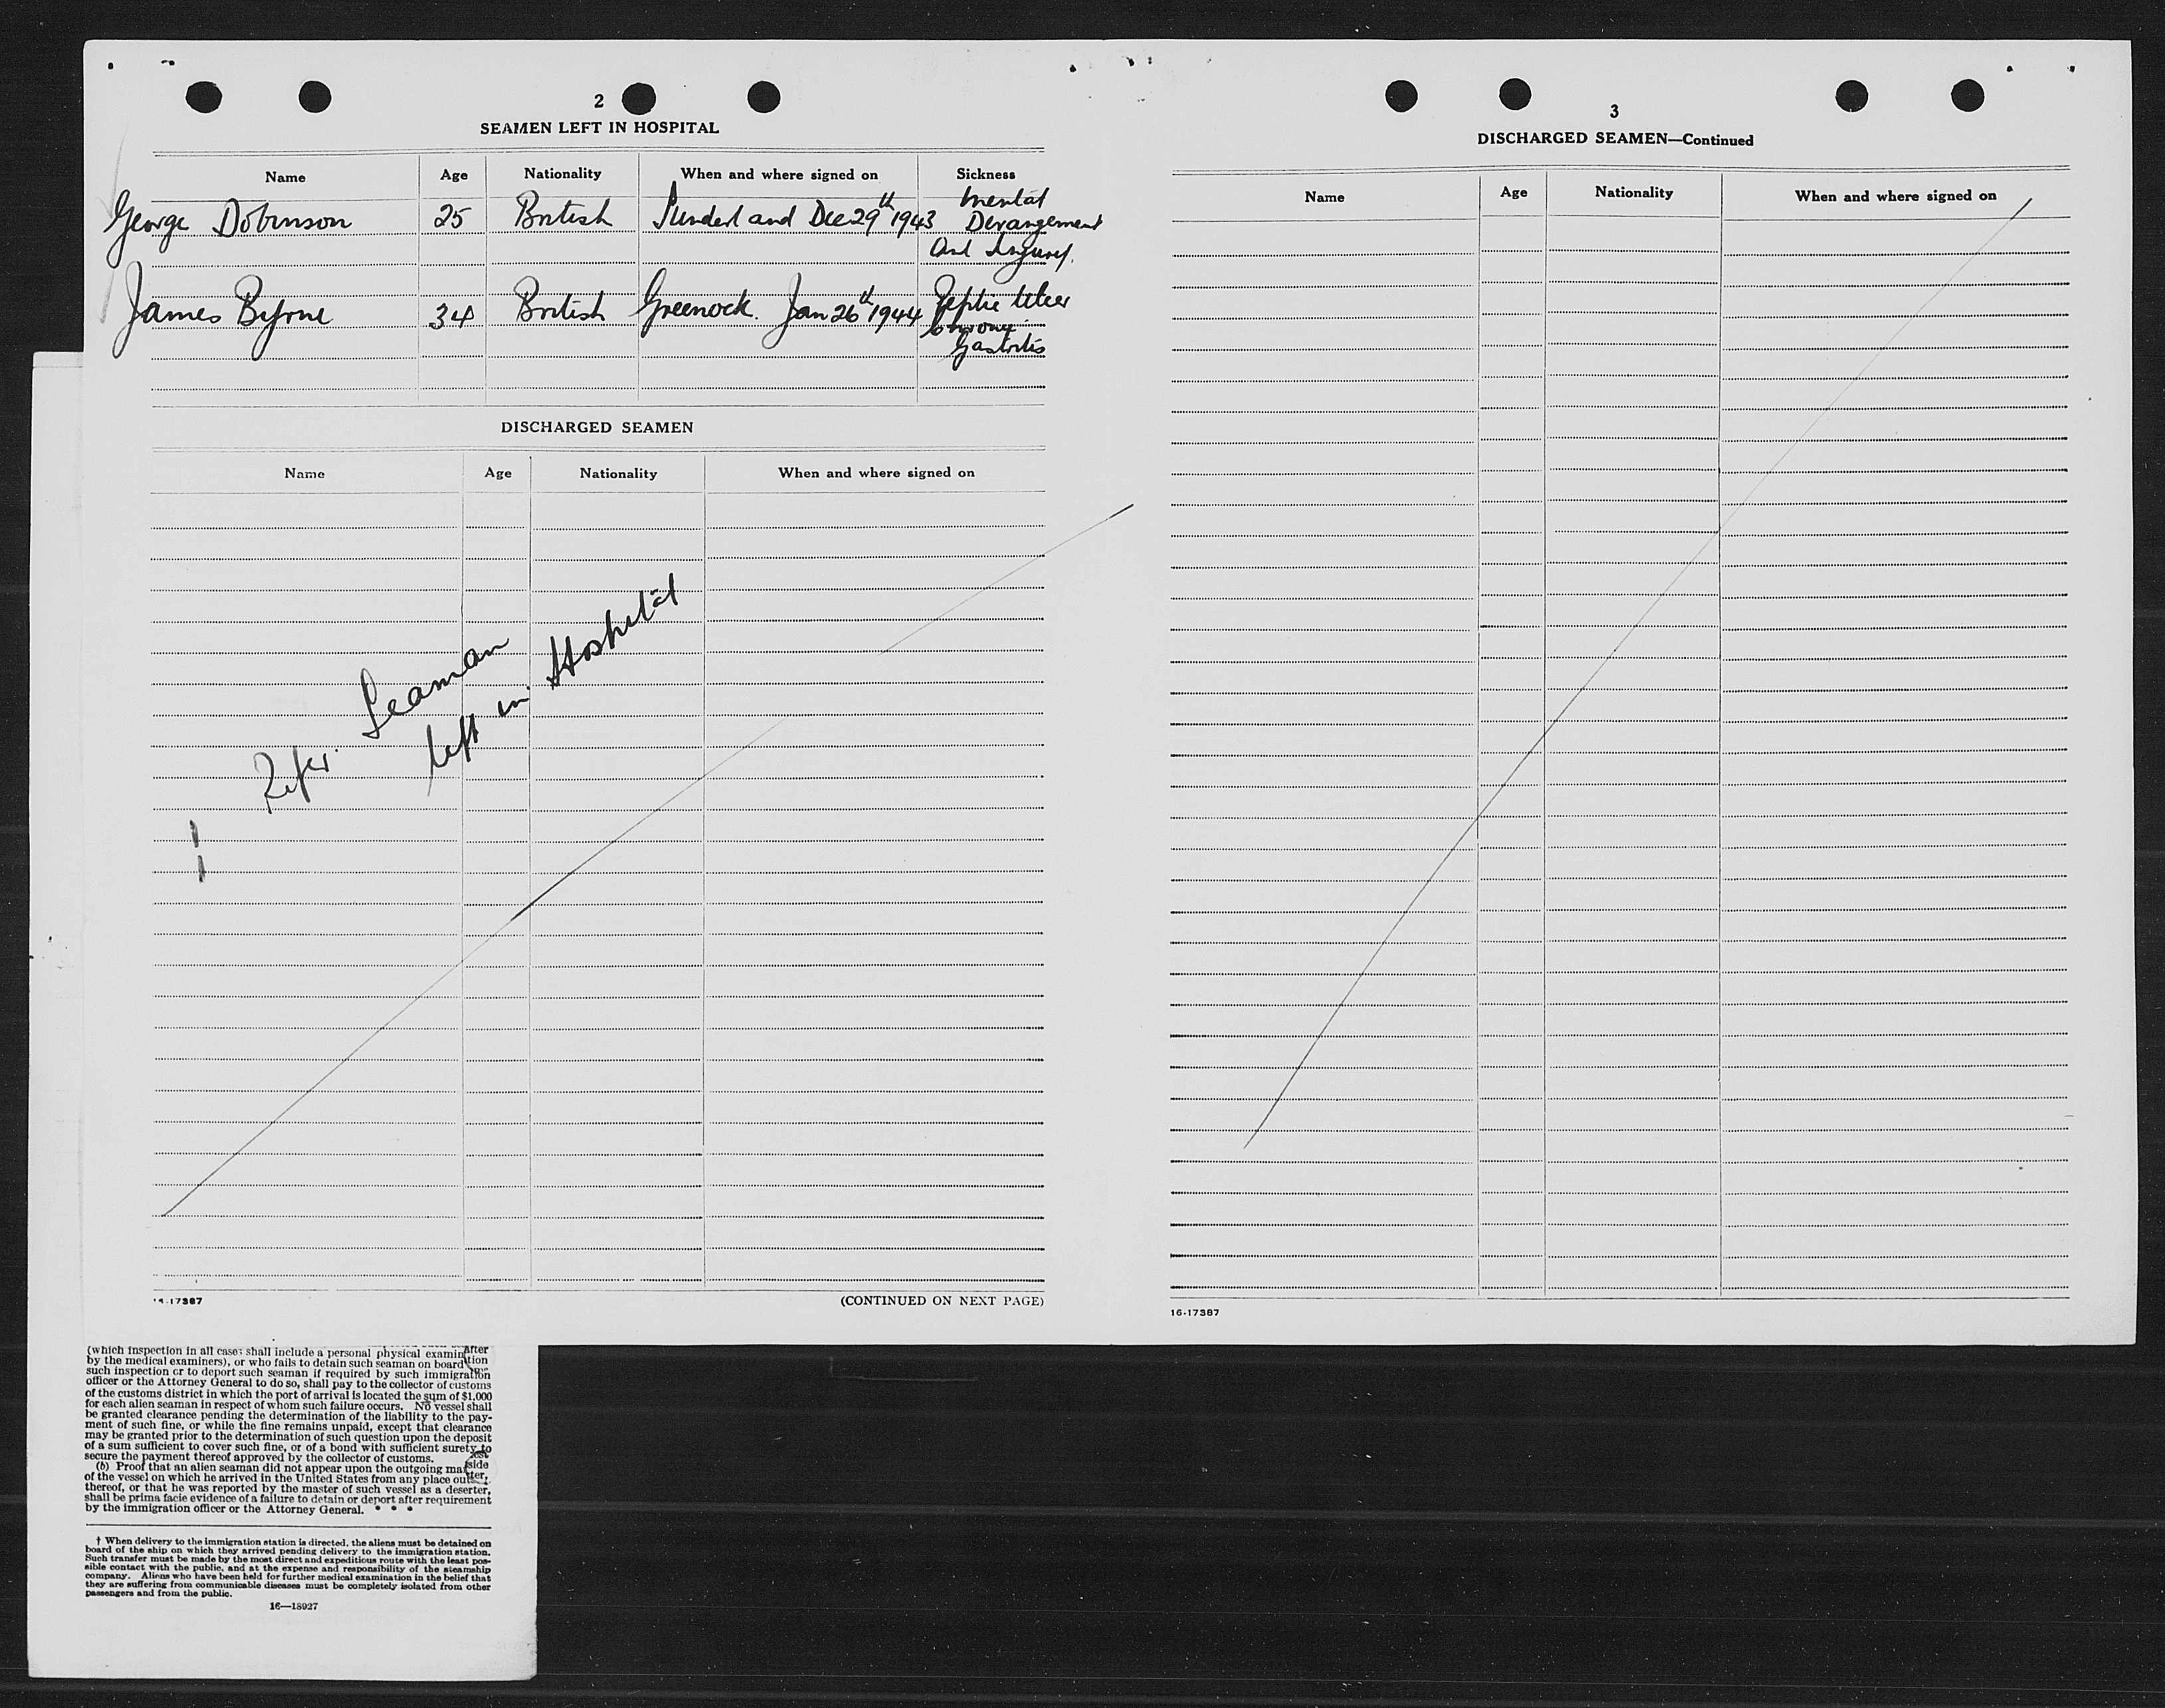 2
SEAMEN LEFT IN HOSPITAL
Name Age Nationality When and where signed on Sickness
George Dobinson 25 British Sunderland Dec 29th 1943 Mental
Derangement
and Injury.
James Byrne 34 British Greenock. Jan 26th 1944 Peptic Ulcer
Gastritis
DISCHARGED SEAMEN
Name Age Nationality When and where signed on
Refer Seaman
left in Hospital
(CONTINUED ON NEXT PAGE)
3
DISCHARGED SEAMEN—Continued
Name Age Nationality When and where signed on
16-17387
(which inspection in all cases shall include a personal physical
by the medical examiners), or who fails to detain such seaman on board
such inspection or to deport such seaman if required by such immigration
officer or the Attorney General to do so, shall pay to the collector of customs
of the customs district in which the port of arrival is located the sum of $1,000
for each alien seaman in respect of whom such failure occurs. No vessel shall
be granted clearance pending the determination of the liability to the pay-
ment of such fine, or while the fine remains unpaid, except that clearance
may be granted prior to the determination of such question upon the deposit
of a sum sufficient to cover such fine, or of a bond with sufficient surety to
secure the payment thereof approved by the collector of customs.
(b) Proof that an alien seaman did not appear upon the outgoing
of the vessel on which he arrived in the United States from any place
thereof, or that he was reported by the master of such vessel as a deserter,
shall be prima facie evidence of a failure to detain or deport after requirement
by the immigration officer or the Attorney General. * * *
† When delivery to the immigration station is directed, the aliens must be detained on
board of the ship on which they arrived pending delivery to the immigration station.
Such transfer must be made by the most direct and expeditious route with the least pos-
sible contact with the public, and at the expense and responsibility of the steamship
company. Aliens who have been held for further medical examination in the belief that
they are suffering from communicable diseases must be completely isolated from other
passengers and from the public.
16—18927